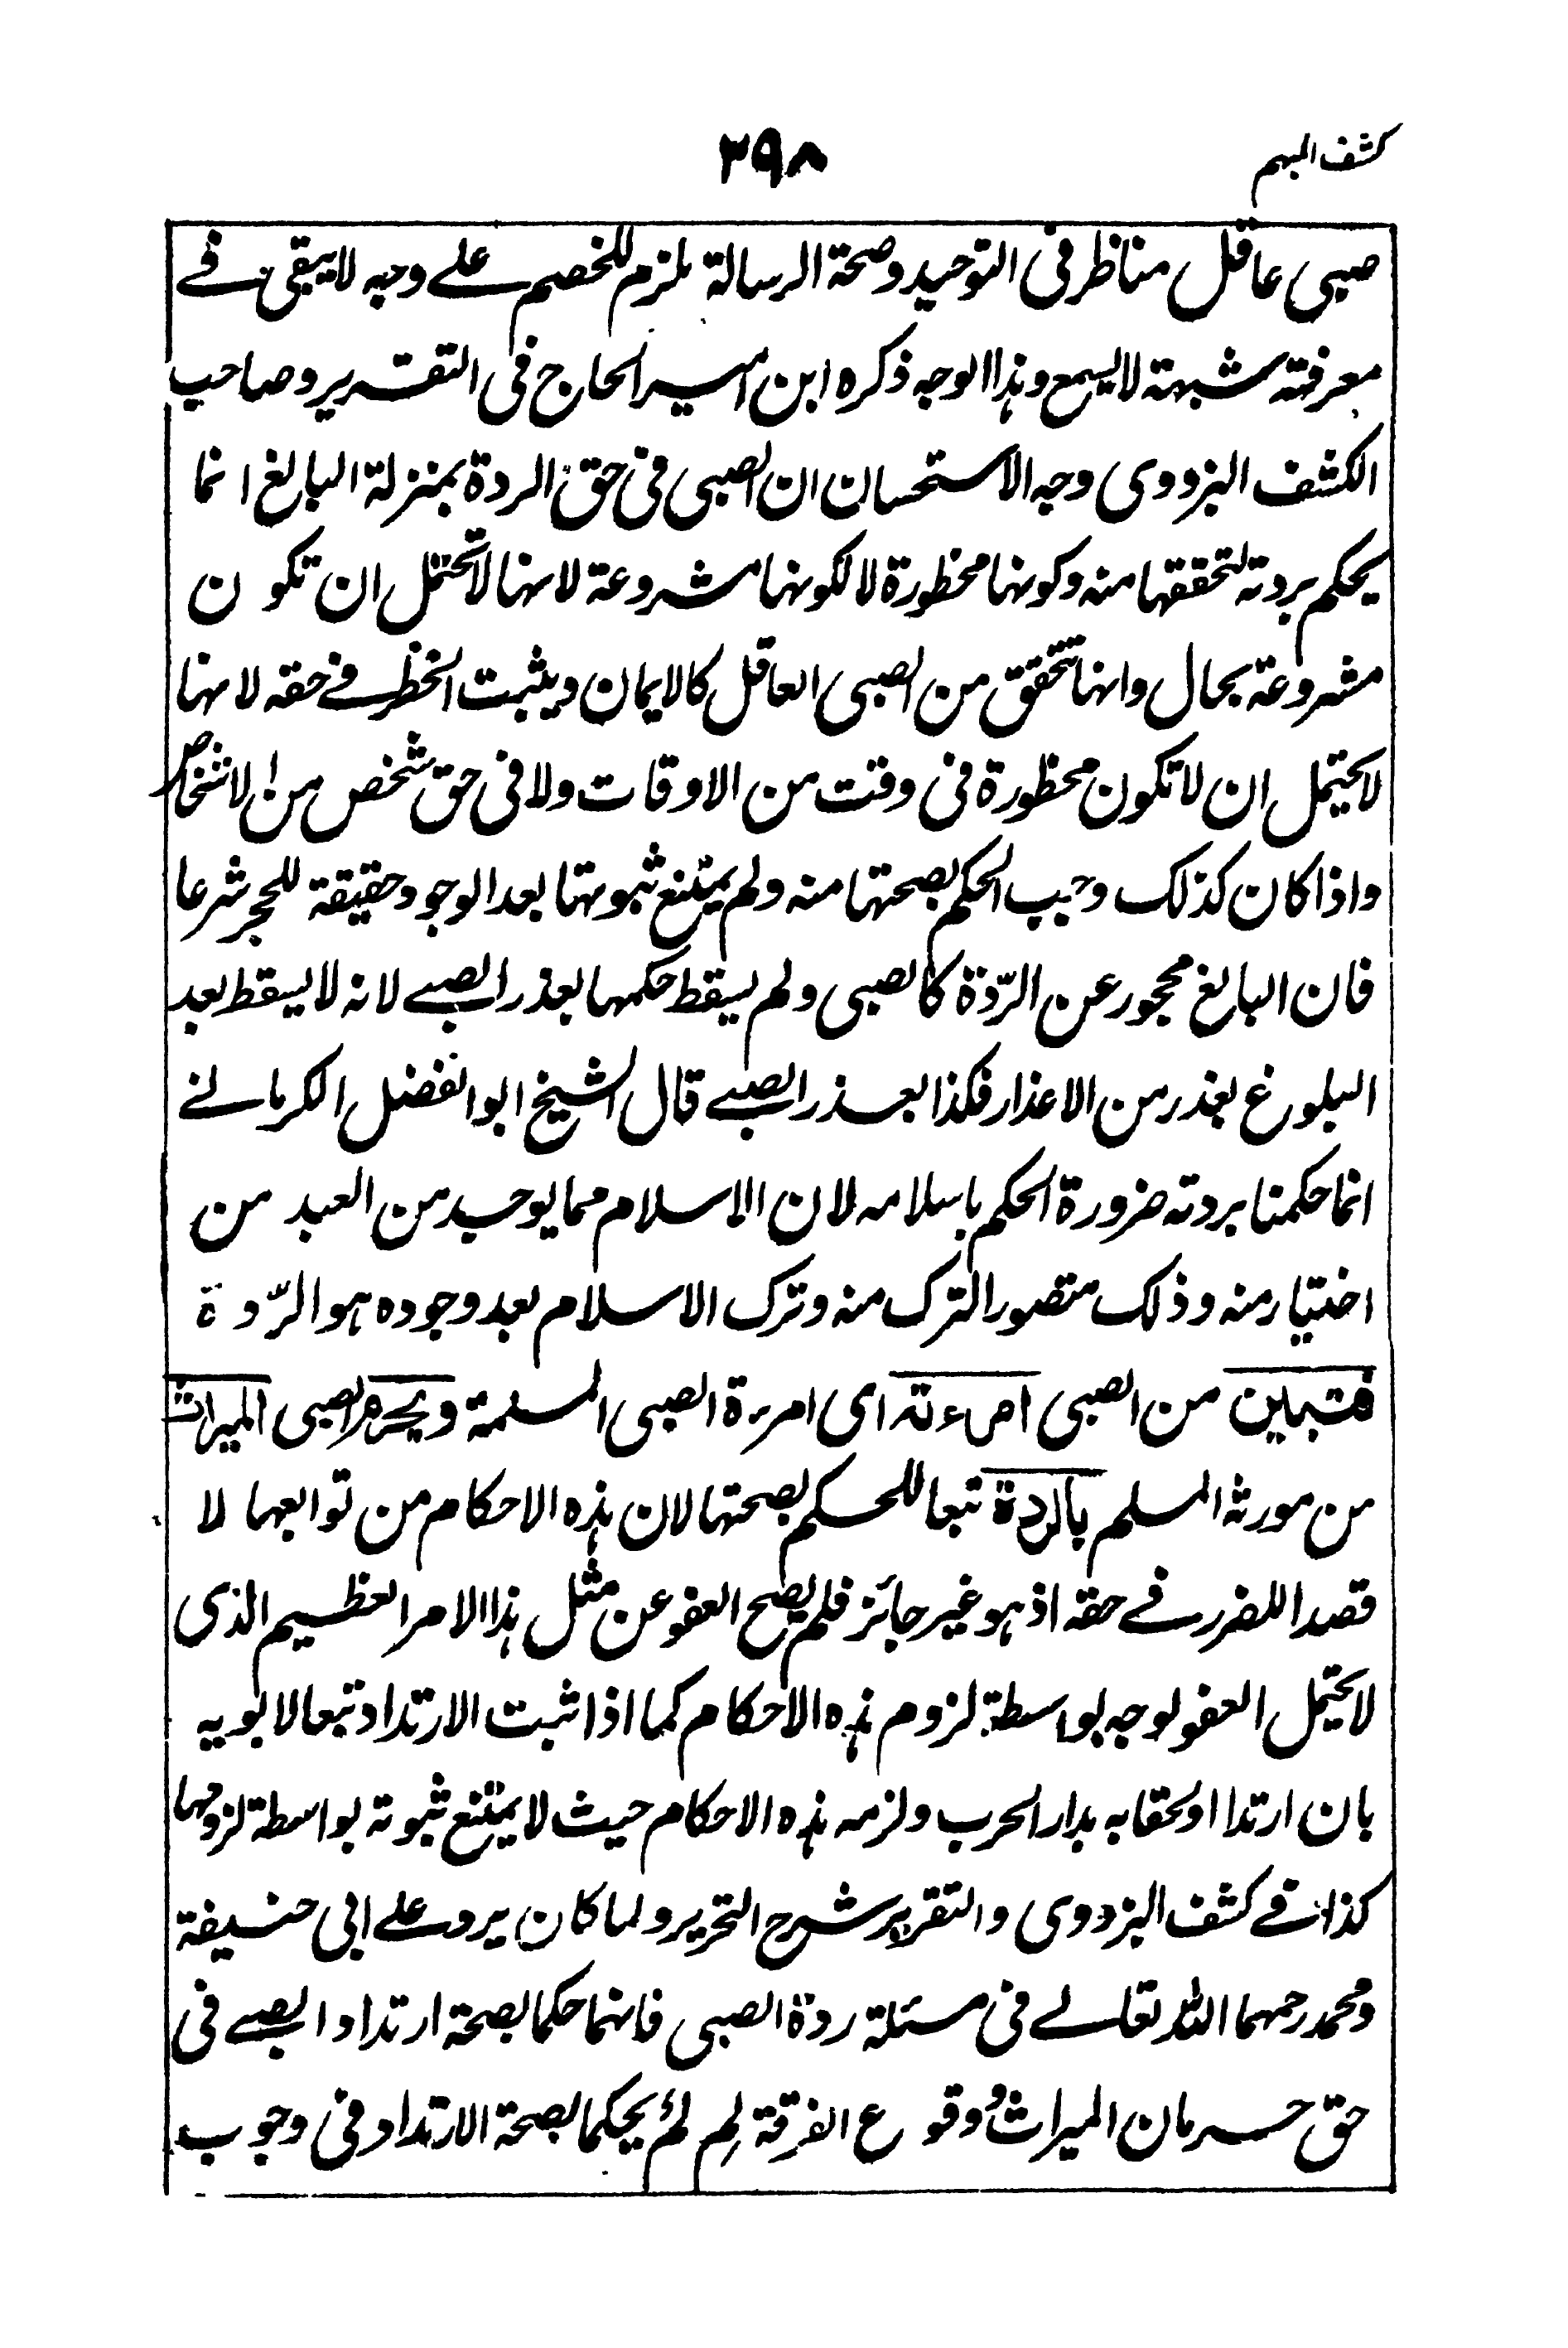 كشف المبهم
٢٩٨
صبى عاقل مناظر فى التوحيد وصحة الرسالة يلزم للخصم على وجه لا يبقى فى
معرفته شبهة لا يسمع وهذا الوجه ذكره ابن امير الحاج فى التقرير وصاحب
الكشف البزدوى وجه الاستحسان ان الصبى فى حق الردة بمنزلة البالغ انما
يحكم بردته لتحققها منه وكونها محظورة لا لكونها مشروعة لانها لا تحتمل ان تكون
مشروعة بحال وانها تتحقق من الصبى العاقل كالايمان ويثبت الخطر فى حقه لانها
لا يحتمل ان لا تكون محظورة فى وقت من الاوقات ولا فى حق شخص من الاشخاص
واذا كان كذلك وجب الحكم بصحتها منه ولم يمتنع ثبوتها بعد الوجود حقيقة للحجر شرعا
فان البالغ محجور عن الرّدة كالصبى ولم يسقط حكمها بعذر الصبى لانه لا يسقط بعد
البلوغ بعذر من الاعذار فكذا بعذر الصبى قال الشيخ ابو الفضل الكرمانى
انما حكمنا بردته ضرورة الحكم باسلامه لان الاسلام مما يوجد من العبد من
اختيار منه وذلك متصور الترك منه وترك الاسلام بعد وجوده هو الرّدة
فتباين من الصبى امرءته اى امرءة الصبى المسلمة ويحرم الصبى الميراث
من مورثه المسلم بالردة تبعا للحكم بصحتها لان هذه الاحكام من توابعها لا
قصدا للضرر فى حقه اذ هو غير جائز فلم يصح العفو عن مثل هذا الامر العظيم الذى
لا يحتمل العفو لوجه بواسطة لزوم هذه الاحكام كما اذا ثبت الارتداد تبعا لابويه
بان ارتدا او لحقا به بدار الحرب ولزمه هذه الاحكام حيث لا يمتنع ثبوته بواسطة لزومها
كذا فى كشف البزدوى والتقرير شرح التحرير ولما كان يرد على ابى حنيفة
ومحمد رحمهما الله تعالى فى مسئلة ردة الصبى فانهما حكما بصحة ارتداد الصبى فى
حق حرمان الميراث ووقوع الفرقة لِم لَمْ يحكما بصحة الارتداد فى وجوب